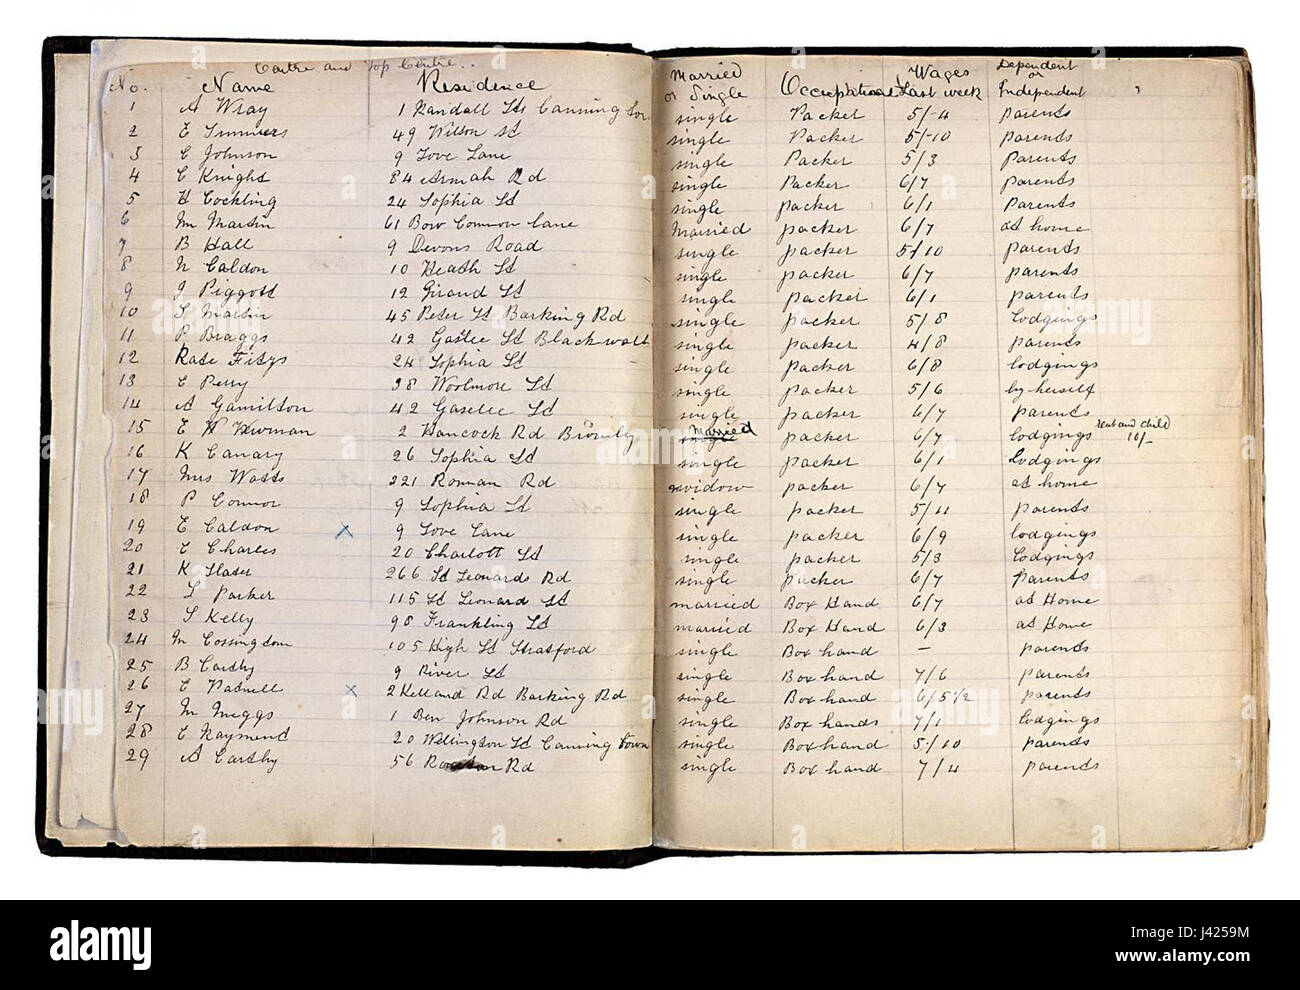 Centre and Top Centre..
No. Name Residence Married or Single Occupation Wages Last week Dependent or Independent
1 A Wray 1 Randall St Canning Town single Packer 5/-4 parents
2 E Simmers 49 Wilson st single Packer 5/-10 parents
3 C Johnson 9 Love Lane single Packer 5/3 Parents
4 C Knight 84 Armah Rd single Packer 6/7 parents
5 H Cockling 24 Sophia St single packer 6/1 parents
6 Mr Martin 61 Bow Common Lane Married packer 6/7 at home
7 B Hall 9 Devons Road single packer 5/10 parents
8 N Caldon 10 Heath St single packer 6/7 parents
9 J Piggott 12 Giraud St single packer 6/1 parents
10 S Martin 45 Peter St Barking Rd single packer 5/8 lodgings
11 P Braggs 42 St Blackwall single packer 4/8 parents
12 Kate Fitzs 24 Sophia St single packer 6/8 lodgings
13 E Perry 38 Woolmore St single packer 5/6 by herself
14 A Gamilton 42 Gaselee St single packer 6/7 parents
15 E H Newman 2 Hancock Rd Bromley Married packer 6/7 lodgings and child 10/-
16 K Canary 26 Sophia St single packer 6/1 Lodgings
17 Mrs Watts 221 Roman Rd widow packer 6/7 at home
18 P Connor 9 Sophia St single packer 5/11 parents
19 E Caldon x 9 Love Lane single packer 6/9 lodgings
20 E Charles 20 Charlott St single packer 5/3 Lodgings
21 K Slater 266 St Leonards Rd single packer 6/7 Parents
22 S Parker 115 St Leonard st married Box Hand 6/7 at Home
23 S Kelly 98 Frankling St married Box Hand 6/3 at Home
24 M Cossingdom 105 High St Stratford single Box hand – parents
25 B Carthy 9 River St single Box hand 7/6 parents
26 E Patnell x 2 Kelland Rd Barking Rd single Box hand 6/5 1/2 parents
27 M Meggs 1 Ben Johnson Rd single Box hands 7/1 lodgings
28 E Raymend 20 Wellington St Canning Town single Box hand 5/10 parents
29 A Carthy 56 Rd single Box hand 7/4 parents
alamy
alamy
Image ID: J4259M
www.alamy.com